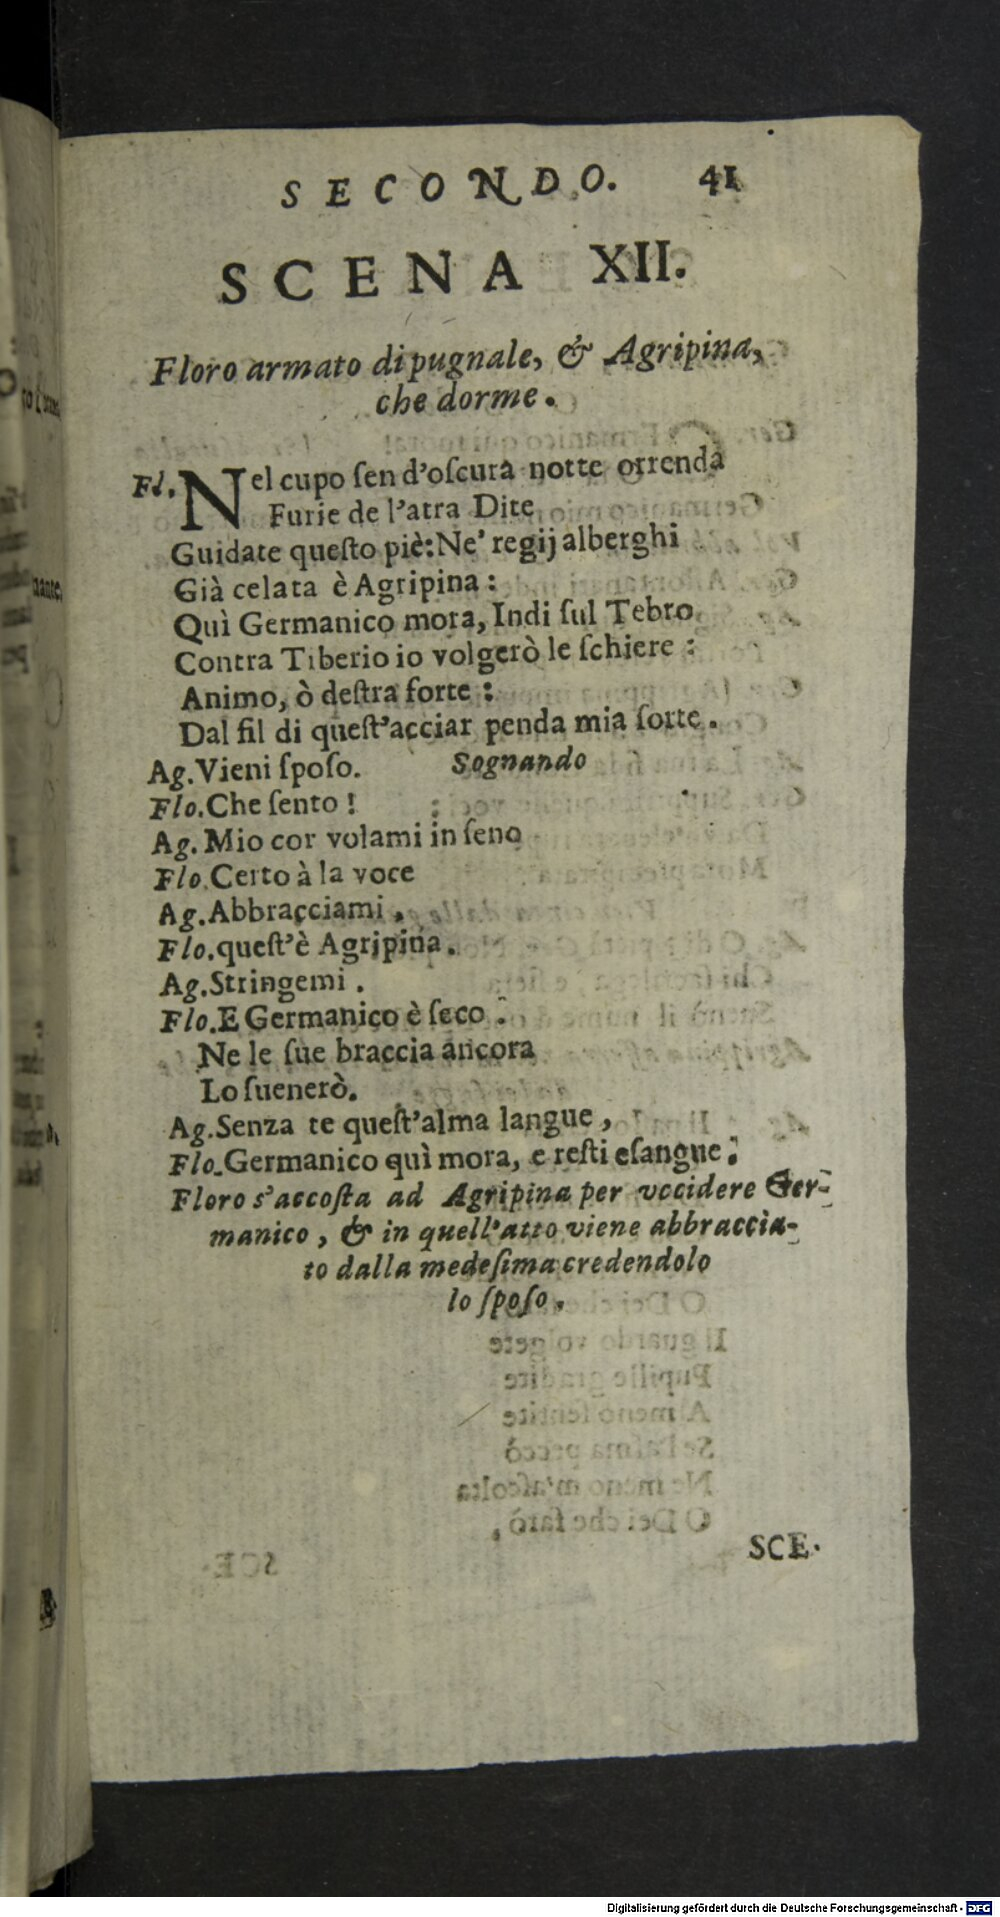 SECONDO. 41
SCENA XII.
Floro armato di pugnale, & Agripina,
che dorme.
Fl. Nel cupo ſen d'oſcura notte orrenda
Furie de l'atra Dite
Guidate queſto piè: Ne' regij alberghi
Già celata è Agripina:
Quì Germanico mora, Indi ſul Tebro
Contra Tiberio io volgerò le ſchiere:
Animo, ò deſtra forte:
Dal fil di queſt'acciar penda mia ſorte.
Ag. Vieni ſpoſo. Sognando
Flo. Che ſento!
Ag. Mio cor volami in ſeno
Flo. Certo à la voce
Ag. Abbracciami.
Flo. queſt'è Agripina.
Ag. Stringemi.
Flo. E Germanico è ſeco:
Ne le ſue braccia ancora
Lo ſuenerò.
Ag. Senza te queſt'alma langue,
Flo. Germanico quì mora, e reſti eſangue:
Floro s'accoſta ad Agripina per vccidere Ger-
manico, & in quell'atto viene abbraccia-
to dalla medeſima credendolo
lo ſpoſo.
SCE.
Digitalisierung gefördert durch die Deutsche Forschungsgemeinschaft - DFG